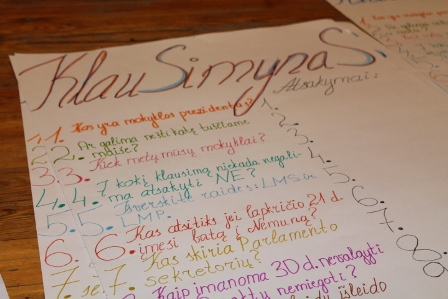 KlauSimynaS
Atsakymai:
1. Kas yra mokyklos prezidentas?
2. Ar galima nešti katę tuščiame
maiše?
3. Kiek metų mūsų mokyklai?
4. Į kokį klausimą niekada negali-
ma atsakyti NE?
5. Iverskite raides: LMS ir
LMP.
6. Kas atsitiks jei lapkričio 21 d.
įmesi batą į Nemuną?
7. Kas skiria Parlamento
sekretorių?
Kaip įmanoma 30 d. nevalgyti
nemiegoti?
išleido
1.
2.
3.
4.
5.
6.
7.
8.